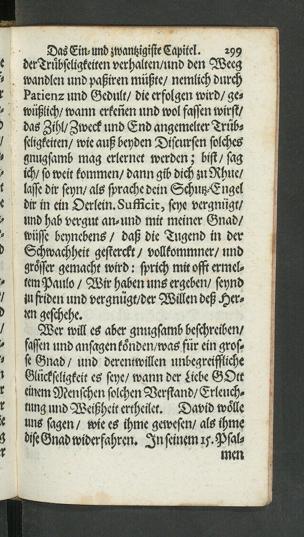 Das Ein- und zwantzigiste Capitel. 299
der Trübseligkeiten verhalten/und den Weeg
wandlen und paßiren müßte/ nemlich durch
Patienz und Gedult/ die erfolgen wird/ ge-
wüßlich/ wann er keñen und wol fassen wirst/
das Zihl/ Zweck und End angemelter Trüb-
seligkeiten/ wie auß beyden Discursen solches
gnugsamb mag erlernet werden; bist/ sag
ich/ so weit kommen/ dann gib dich zu Rhue/
lasse dir seyn/ als sprache dein Schutz-Engel
dir in ein Oerlein. Sufficit, seye vergnügt/
und hab vergut an- und mit meiner Gnad/
wüsse beynebens/ daß die Tugend in der
Schwachheit gesterckt/ vollkommner/ und
grösser gemacht wird: sprich mit offt ermel-
tem Paulo/ Wir haben uns ergeben/ seynd
zu friden und vergnügt/ der Willen deß Her-
ren geschehe.
Wer will es aber gnugsamb beschreiben/
fassen und ansagen können/was für ein gros-
se Gnad/ und derentwillen unbegreiffliche
Glückseligkeit es seye/ wann der Liebe GOtt
einem Menschen solchen Verstand/ Erleuch-
tung und Weißheit ertheilet. David wölle
uns sagen/ wie es ihme gewesen/ als ihme
dise Gnad widerfahren. In seinem 15. Psal-
men